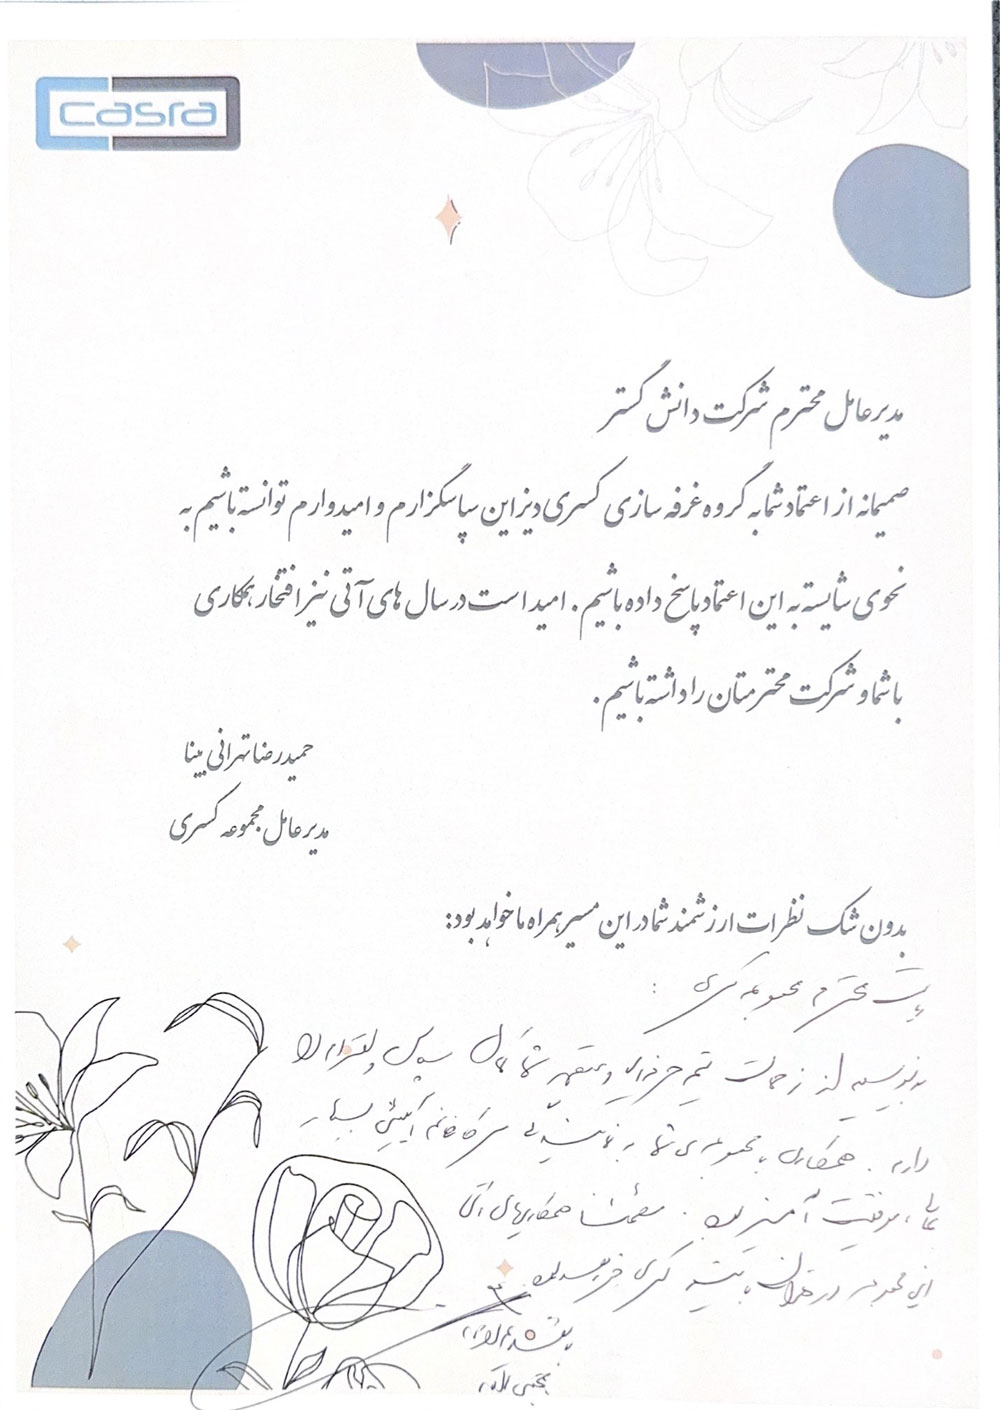 casra
مدیرعامل محترم شرکت دانش گستر
صمیمانه از اعتماد شما به گروه غرفه سازی کسری دیزاین سپاسگزارم و امیدوارم توانسته باشیم به
نحوی شایسته به این اعتماد پاسخ داده باشیم. امید است در سال های آتی نیز افتخار همکاری
با شما و شرکت محترمتان را داشته باشیم.
حمیدرضا تهرانی بینا
مدیرعامل مجموعه کسری
بدون شک نظرات ارزشمند شما در این مسیر همراه ما خواهد بود:
محترم مجموعه کسری :
بدینوسیله از زحمات تیم حرفه‌ای و متعهد شما کمال سپاس و قدردانی را
دارم. همکاری با مجموعه‌ی شما به نمایندگی سرکار خانم بسیار
عالی و موفقیت آمیز بود. مطمئنا همکاریهای آتی
این مجموعه در کسری خواهد بود.
با تشکر
مجتبی